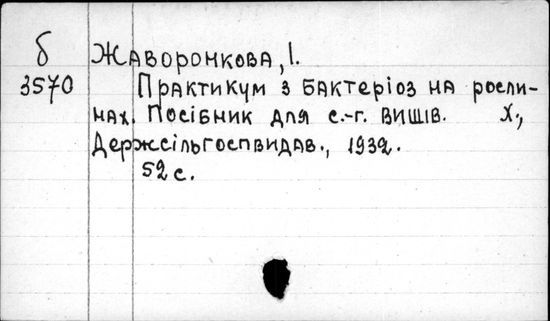 б Жаворонкова, І.
3570 Практикум з бактеріоз на росли-
нах. Посібник для с.-г. вишів. Х.,
Держсільгоспвидав., 1932.
52 с.